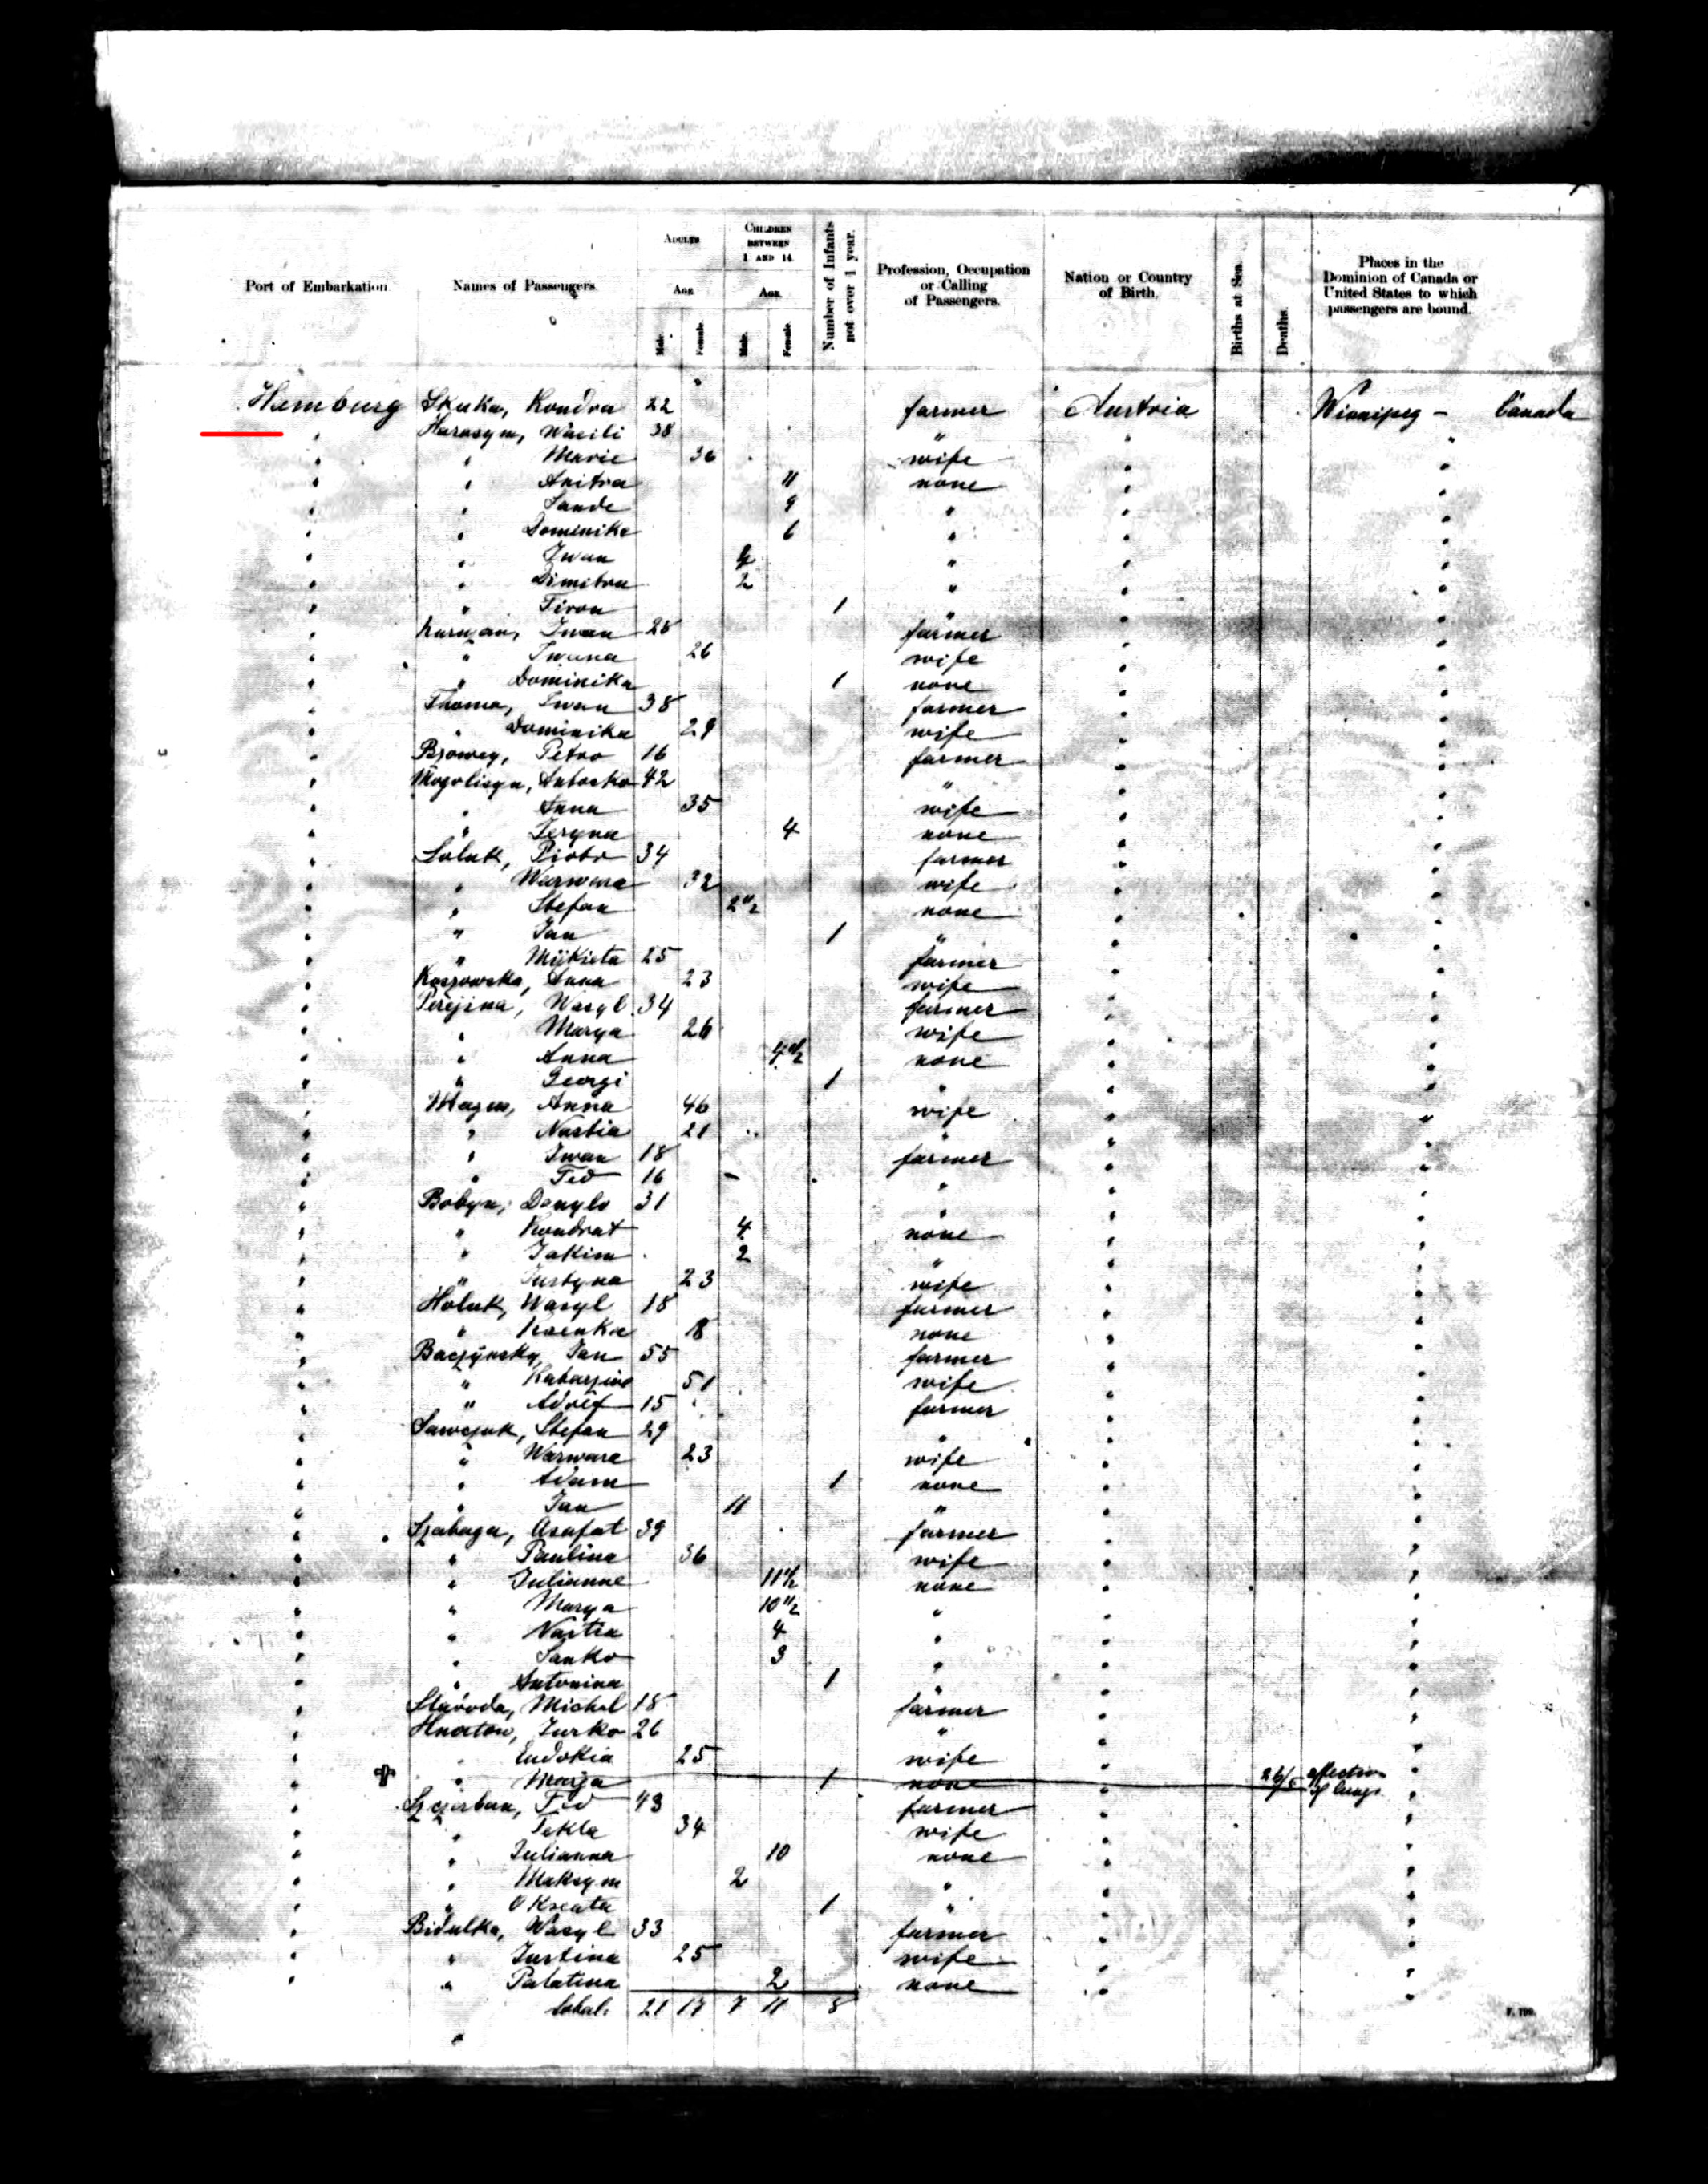 Port of Embarkation. Names of Passengers. ADULTS AGE Male. Female. CHILDREN BETWEEN 1 AND 14. AGE. Male. Female. Number of Infants not over 1 year. Profession, Occupation or Calling of Passengers. Nation or Country of Birth. Births at Sea. Deaths. Places in the Dominion of Canada or United States to which passengers are bound.
Hamburg Skuka, Kondra 22 farmer Austria Winnipeg - Canada
" Harasym, Wasili 38 " " "
" " Marie 36 wife " "
" " Anitra 11 none " "
" " Sande 9 " " "
" " Dominika 6 " " "
" " Iwan 4 " " "
" " Dimitru 2 " " "
" " Tiron 1 " " "
" Kurzan, Iwan 28 farmer " "
" " Iwana 26 wife " "
" " Dominika 1 none " "
" Thoma, Iwan 38 farmer " "
" " Dominika 29 wife " "
" Bzowey, Petro 16 farmer " "
" Mogolisyn, Antosko 42 " " "
" " Anna 35 wife " "
" " Jeryna 4 none " "
" Soluk, Piotr 34 farmer " "
" " Warwara 32 wife " "
" " Stefan 2 1/2 none " "
" " Jan 1 " " "
" " Mikieta 25 farmer " "
" Koszowska, Anna 23 wife " "
" Perejma, Wasyl 34 farmer " "
" " Marya 26 wife " "
" " Anna 4 1/2 none " "
" " Georgi 1 " " "
" Mazur, Anna 46 wife " "
" " Nastia 21 " " "
" " Iwan 18 farmer " "
" " Fed 16 " " "
" Bobyn, Danylo 31 " " "
" " Kondrat 4 none " "
" " Jakim 2 " " "
" " Justyna 23 wife " "
" Holuk, Wasyl 18 farmer " "
" " Ksenka 18 none " "
" Baczynsky, Jan 55 farmer " "
" " Katarzina 51 wife " "
" " Adolf 15 farmer " "
" Sawczuk, Stefan 29 " " "
" " Warwara 23 wife " "
" " Adam 1 none " "
" " Jan 11 " " "
" Szabaga, Asafat 39 farmer " "
" " Paulina 36 wife " "
" " Julianne 11 1/2 none " "
" " Marya 10 1/2 " " "
" " Nastia 4 " " "
" " Sanko 3 " " "
" " Antonina 1 " " "
" Slavoda, Michal 18 farmer " "
" Hnatow, Jurko 26 " " "
" " Eudokia 25 wife " "
" " Marja 1 none " 26/5 affection of lungs "
" Szczerban, Fed 43 farmer " "
" " Tekla 34 wife " "
" " Julianna 10 none " "
" " Maksym 2 " " "
" " Oksenta 1 " " "
" Bidulka, Wasyl 33 farmer " "
" " Justina 25 wife " "
" " Palatina 2 none " "
total. 21 17 7 11 8
F. 799.